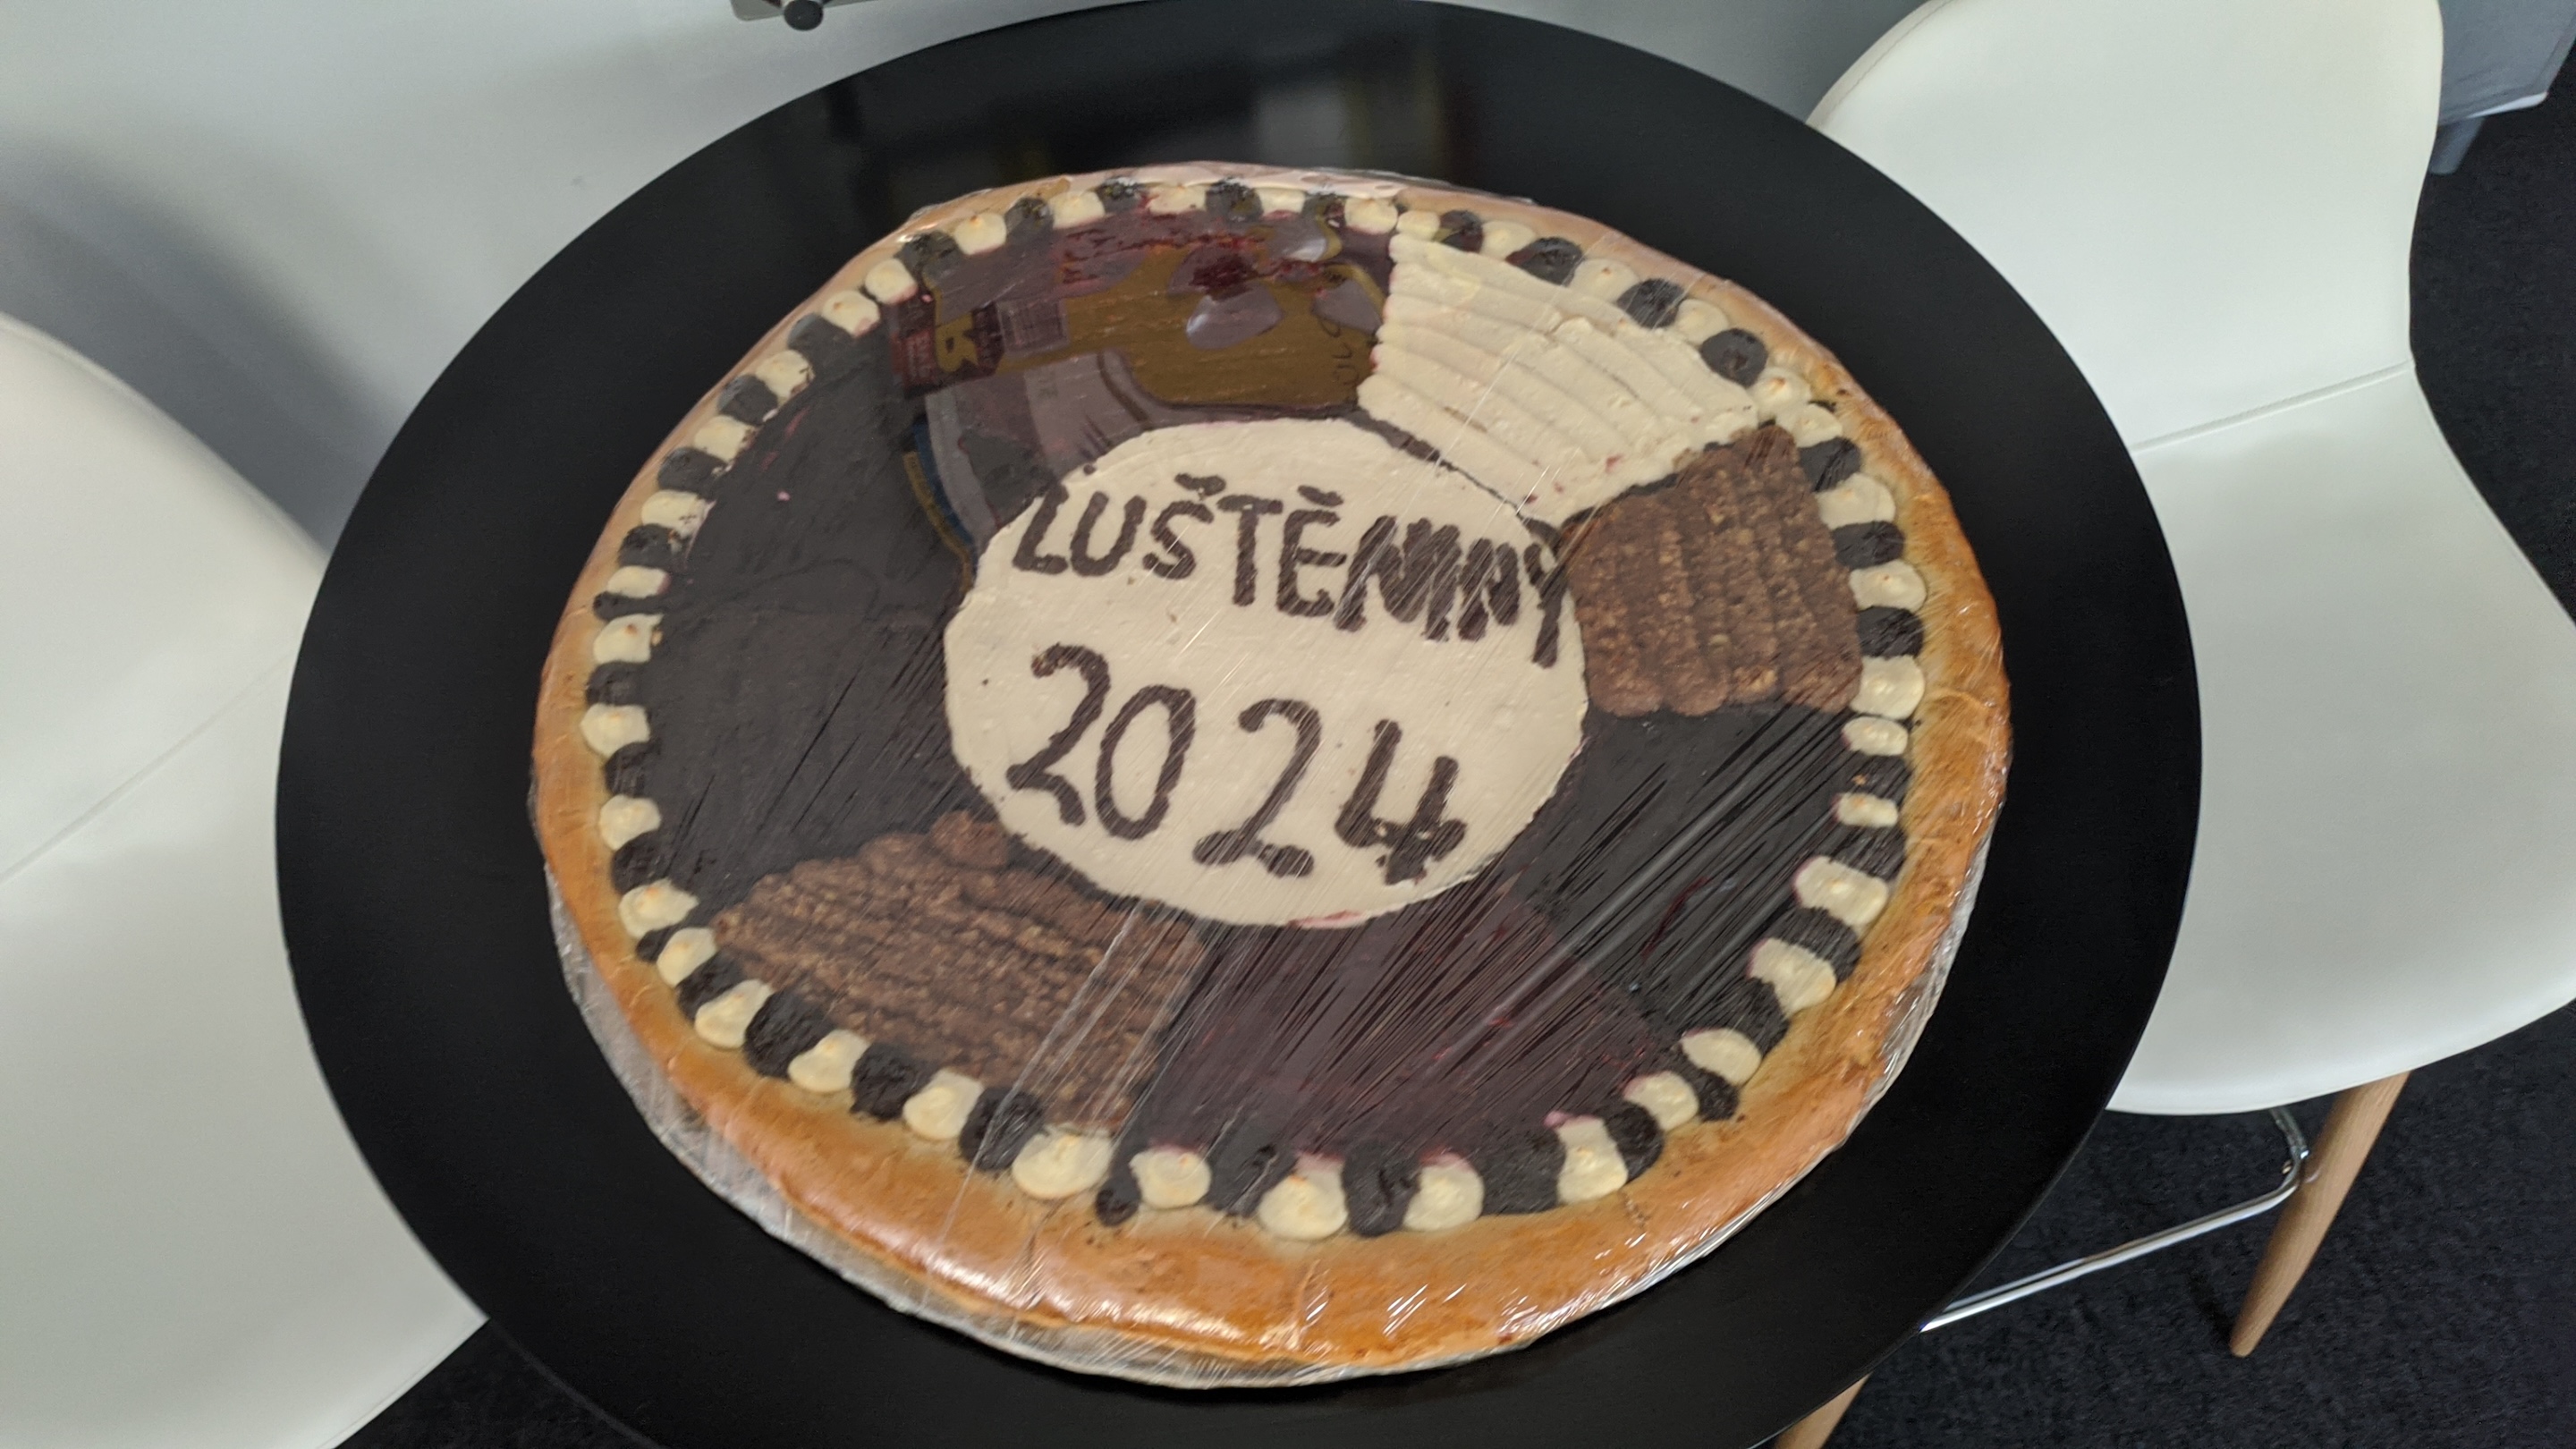 LUŠTĚNINY
2024